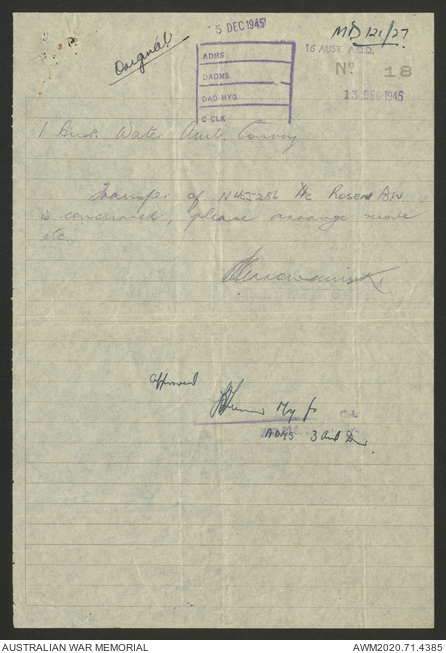 15 DEC 1945
MD 121/27
Original
ADMS
DADMS
DAD HYG
C CLK
16 AUST. A.O.D.
No 18
13 DEC 1945
1 Aust. Water Amb. Convoy
Transfer of Rosen
is concurred, please arrange move
etc.
approved
Maj for Col
ADMS 3 Aust Div
AUSTRALIAN WAR MEMORIAL
AWM2020.71.4385